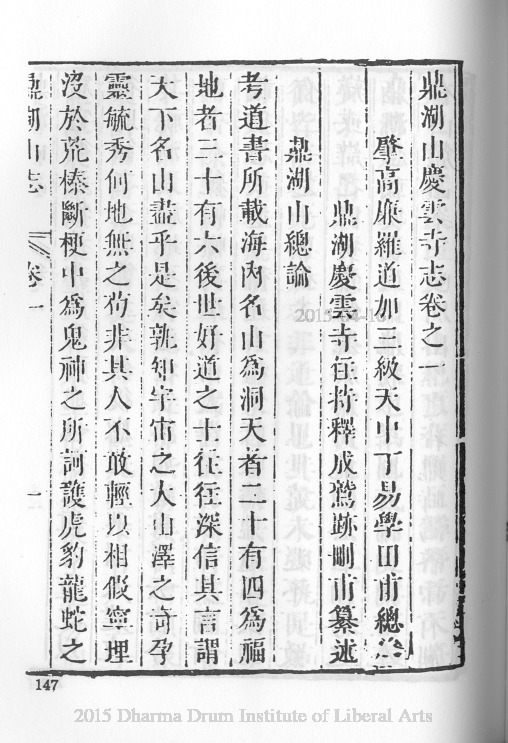 鼎湖山慶雲寺志卷之一
肇高廉羅道加三級天中丁易學田甫總
鼎湖慶雲寺住持釋成鷲跡刪甫纂述
鼎湖山總論
考道書所載海內名山為洞天者二十有四為福
地者三十有六後世好道之士往往深信其言謂
天下名山盡乎是矣孰知宇宙之大山澤之奇孕
靈毓秀何地無之茍非其人不敢輕以相假寧埋
沒於荒榛斷梗中為鬼神之所訶護虎豹龍蛇之
鼎湖山志 卷一 一
147
2015 Dharma Drum Institute of Liberal Arts